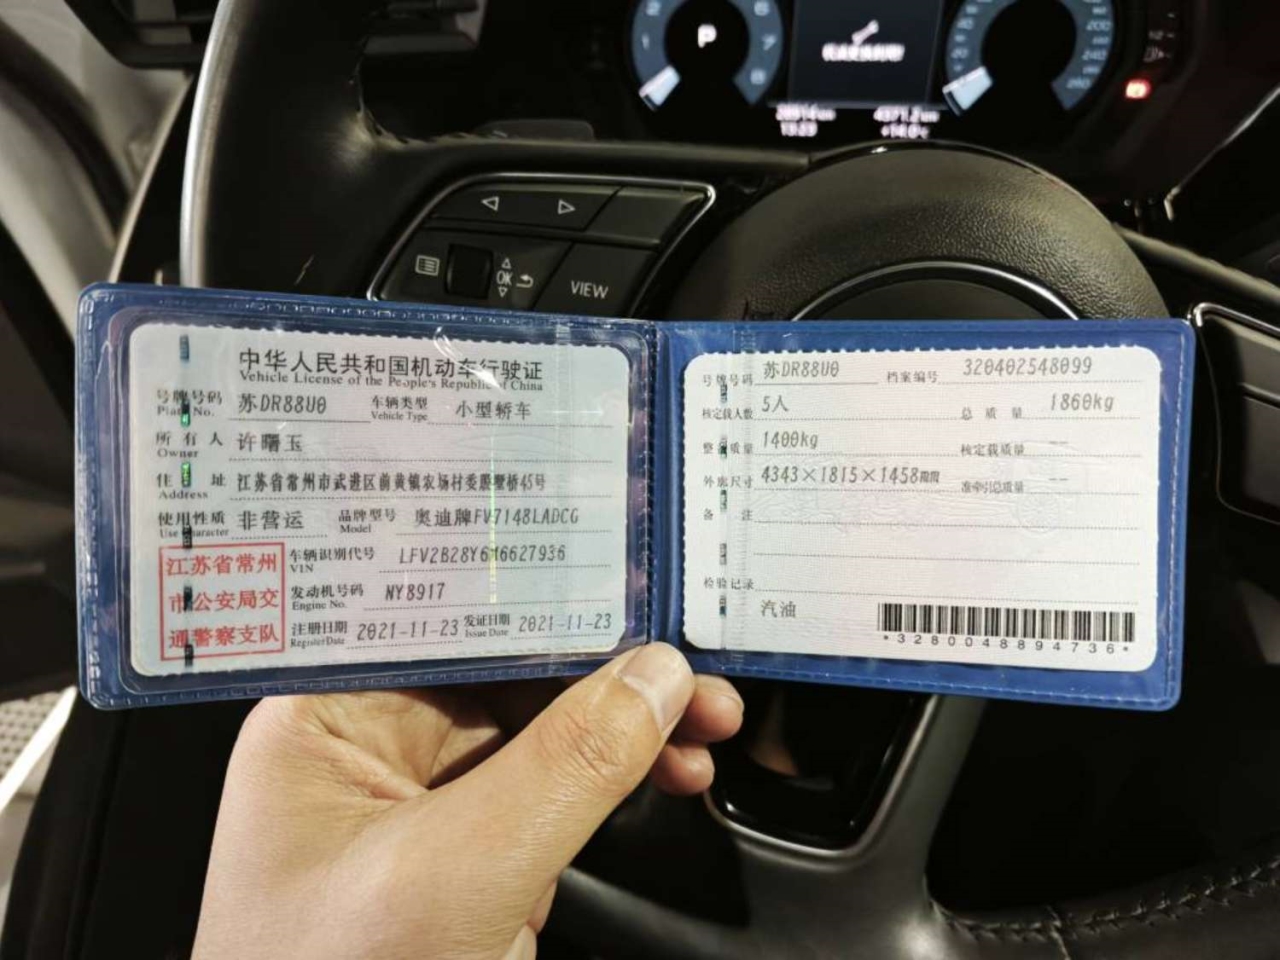 P
VIEW
OK
中华人民共和国机动车行驶证
Vehicle License of the People's Republic of China
号牌号码 苏DR88U0 车辆类型 小型轿车
Plate No. Vehicle Type
所有人 许曙玉
Owner
住址 江苏省常州市武进区前黄镇农场村委
Address
使用性质 非营运 品牌型号 奥迪牌FV7148LADCG
Use Character Model
江苏省常州
市公安局交
通警察支队
车辆识别代号
VIN
发动机号码 NY8917
Engine No.
注册日期 2021-11-23 发证日期 2021-11-23
Register Date Issue Date
号牌号码 苏DR88U0 档案编号 320402548099
核定载人数 5人 总质量 1860kg
整备质量 1400kg 核定载质量 --
外廓尺寸 4343×1815×1458mm 准牵引总质量 --
备注
检验记录
汽油
*3280048894736*